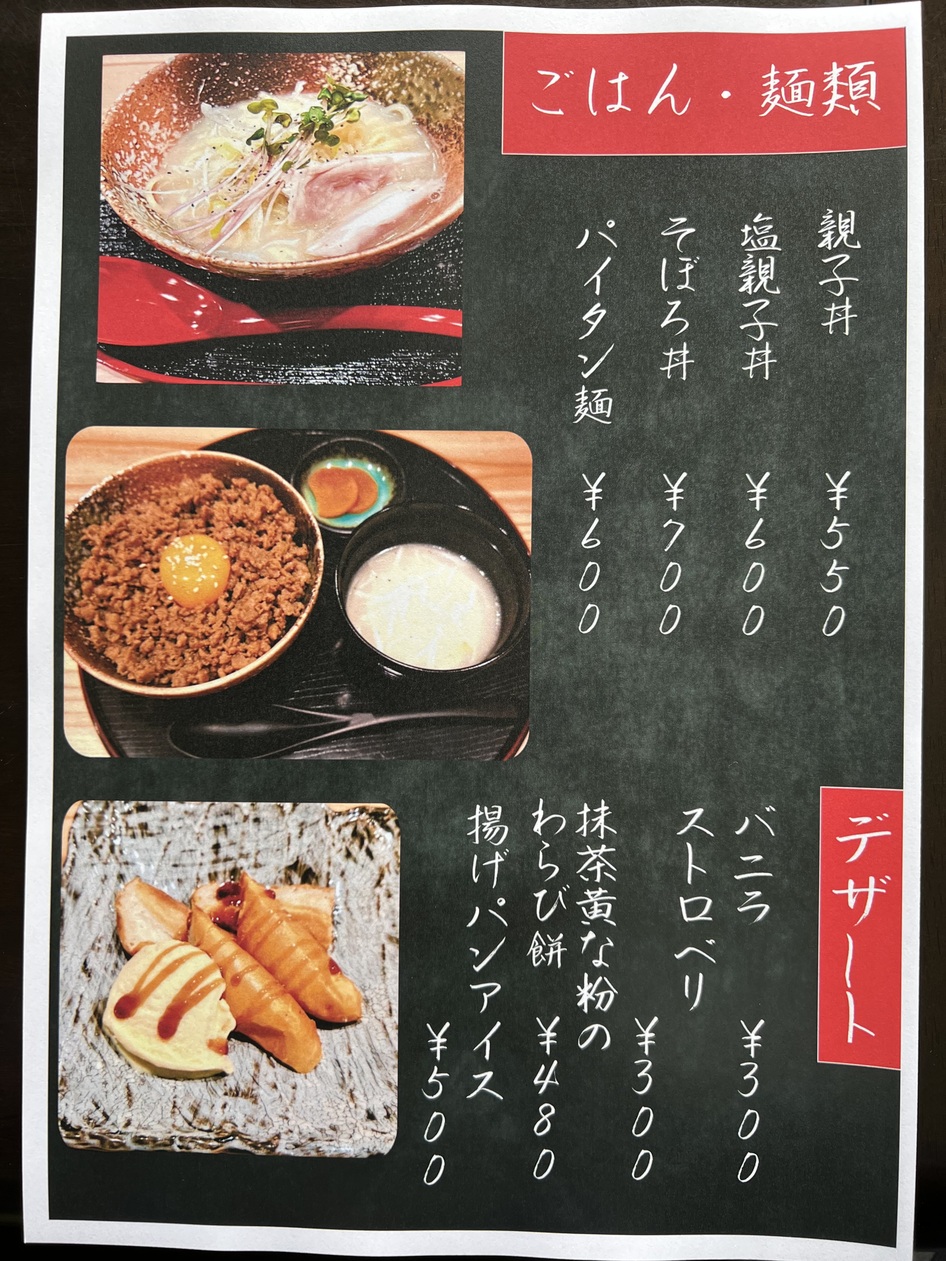 ごはん・麺類
親子丼 ¥550
塩親子丼 ¥600
そぼろ丼 ¥700
パイタン麺 ¥600
デザート
バニラ ¥300
ストロベリ ¥300
抹茶黄な粉の
わらび餅 ¥480
揚げパンアイス
¥500